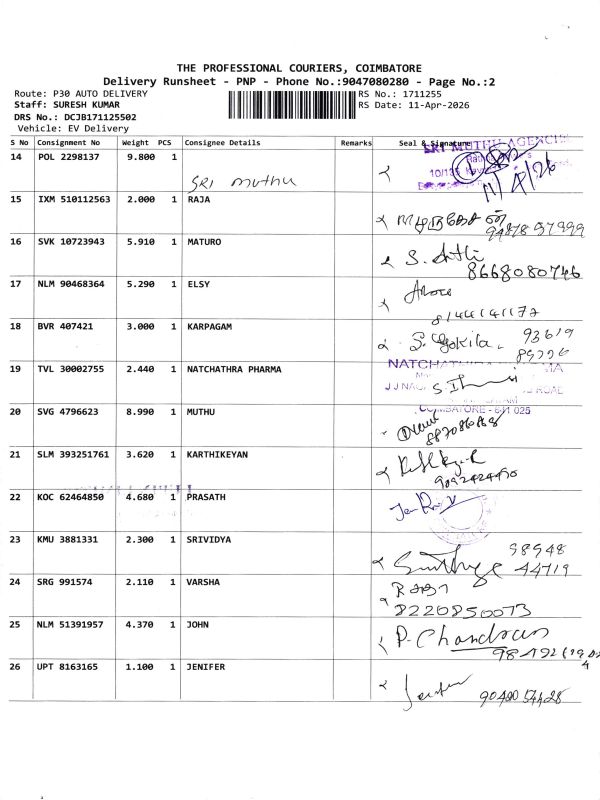 THE PROFESSIONAL COURIERS, COIMBATORE
Delivery Runsheet - PNP - Phone No.:9047080280 - Page No.:2
Route: P30 AUTO DELIVERY RS No.: 1711255
Staff: SURESH KUMAR RS Date: 11-Apr-2026
DRS No.: DCJB171125502
Vehicle: EV Delivery
S No Consignment No Weight PCS Consignee Details Remarks Seal & Signature
14 POL 2298137 9.800 1 SRI MUTHU AGENCIES
SRI muthu 11/4/26
15 IXM 510112563 2.000 1 RAJA
16 SVK 10723943 5.910 1 MATURO
8668080746
17 NLM 90468364 5.290 1 ELSY
8144141172
18 BVR 407421 3.000 1 KARPAGAM
S. Gokila. 93619
19 TVL 30002755 2.440 1 NATCHATHRA PHARMA
COIMBATORE - 641 025
20 SVG 4796623 8.990 1 MUTHU
21 SLM 393251761 3.620 1 KARTHIKEYAN
9092424490
22 KOC 62464850 4.680 1 PRASATH
23 KMU 3881331 2.300 1 SRIVIDYA 98948
44719
24 SRG 991574 2.110 1 VARSHA
8220850073
25 NLM 51391957 4.370 1 JOHN P. Chandran
26 UPT 8163165 1.100 1 JENIFER